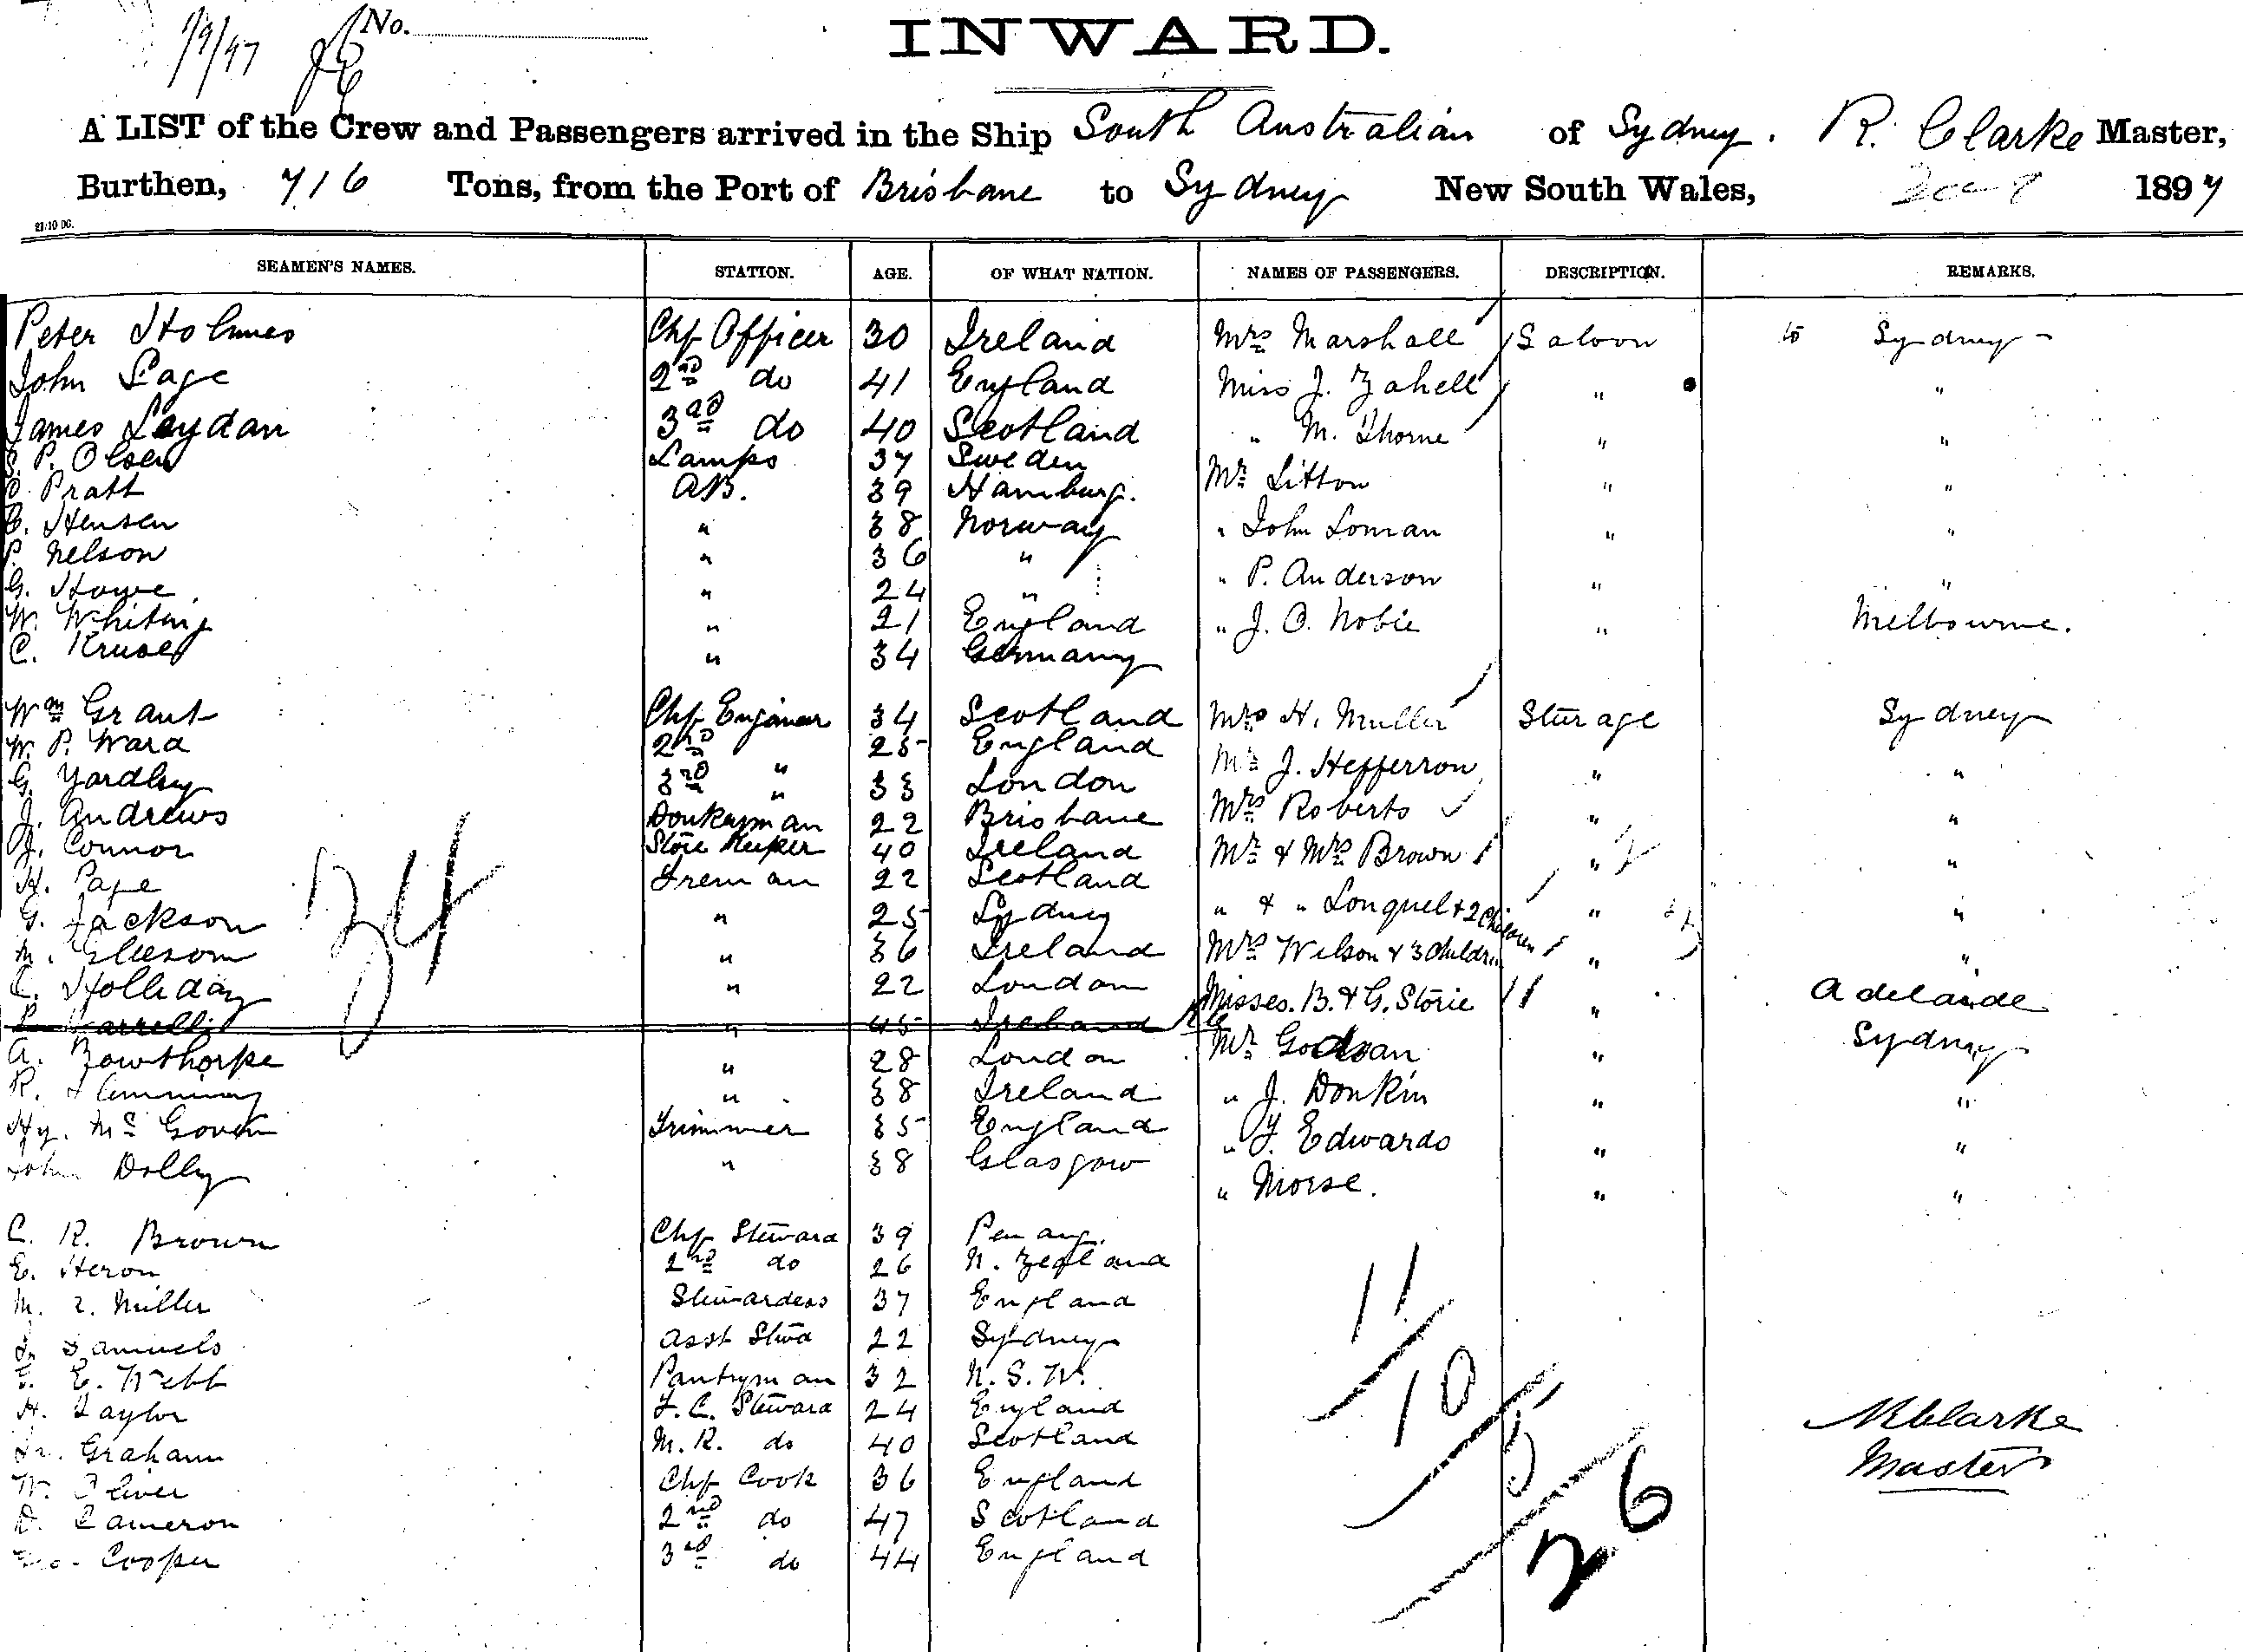 1/9/97 No.
INWARD.
A LIST of the Crew and Passengers arrived in the Ship South Australian of Sydney. R. Clarke Master,
Burthen, 716 Tons, from the Port of Brisbane to Sydney New South Wales, 1897
SEAMEN'S NAMES. STATION. AGE. OF WHAT NATION. NAMES OF PASSENGERS. DESCRIPTION. REMARKS.
Peter Holmes Chf Officer 30 Ireland Mrs Marshall Saloon to Sydney
John Page 2nd do 41 England Miss J. Zahell " "
James Leydan 3rd do 40 Scotland " M. Thorne " "
P. Olsen Lamps 37 Sweden
Mr Litton " "
Pratt AB. 39 Hamburg.
Hensen " 38 Norway " John Loman " "
P. Nelson " 36 "
" P. Anderson " "
G. Howe " 24 "
W. Whiting " 21 England " J. O. Nobie " Melbourne.
C. Kruse " 34 Germany
Wm Grant Chf Enginear 34 Scotland Mrs H. Muller Sturage Sydney
W. P. Ward 2nd " 25 England
Mr J. Hefferron " "
G. Yardley 3rd " 33 London
J. Andrews Donkeyman 22 Brisbane Mrs Roberts " "
J. Connor Store Keeper 40 Ireland Mr & Mrs Brown " 2 "
H. Page Freman 22 Scotland
G. Jackson " 25 Sydney " & " Longuel & 2 Children " "
M. Gleeson " 36 Ireland Mrs Wilson & 3 Children " "
C. Holliday " 22 London Misses. B. & G. Storie " Adelaide
Farrelli " 45 Ireland
A. Bowthorpe " 28 London Mr " Sydney
R. Flemming " 38 Ireland " J. Donkin " "
Hy. Mc Govern Trimmer 35 England " F. Edwards " "
John Dolly " 38 Glasgow
" Morse. " "
34
C. R. Brown Chf Steward 39 Penang.
E. Heron 2nd do 26 N. Zealand
M. Miller Stewardess 37 England
Samuels Asst Stwd 22 Sydney
E. Webb Pantryman 32 N. S. W.
H. Taylor F. C. Steward 24 England
Graham M. R. do 40 Scotland
W. Oliver Chf Cook 36 England
D. Cameron 2nd do 47 Scotland
Cooper 3rd do 44 England
11
10
5
26
R Clarke
Master